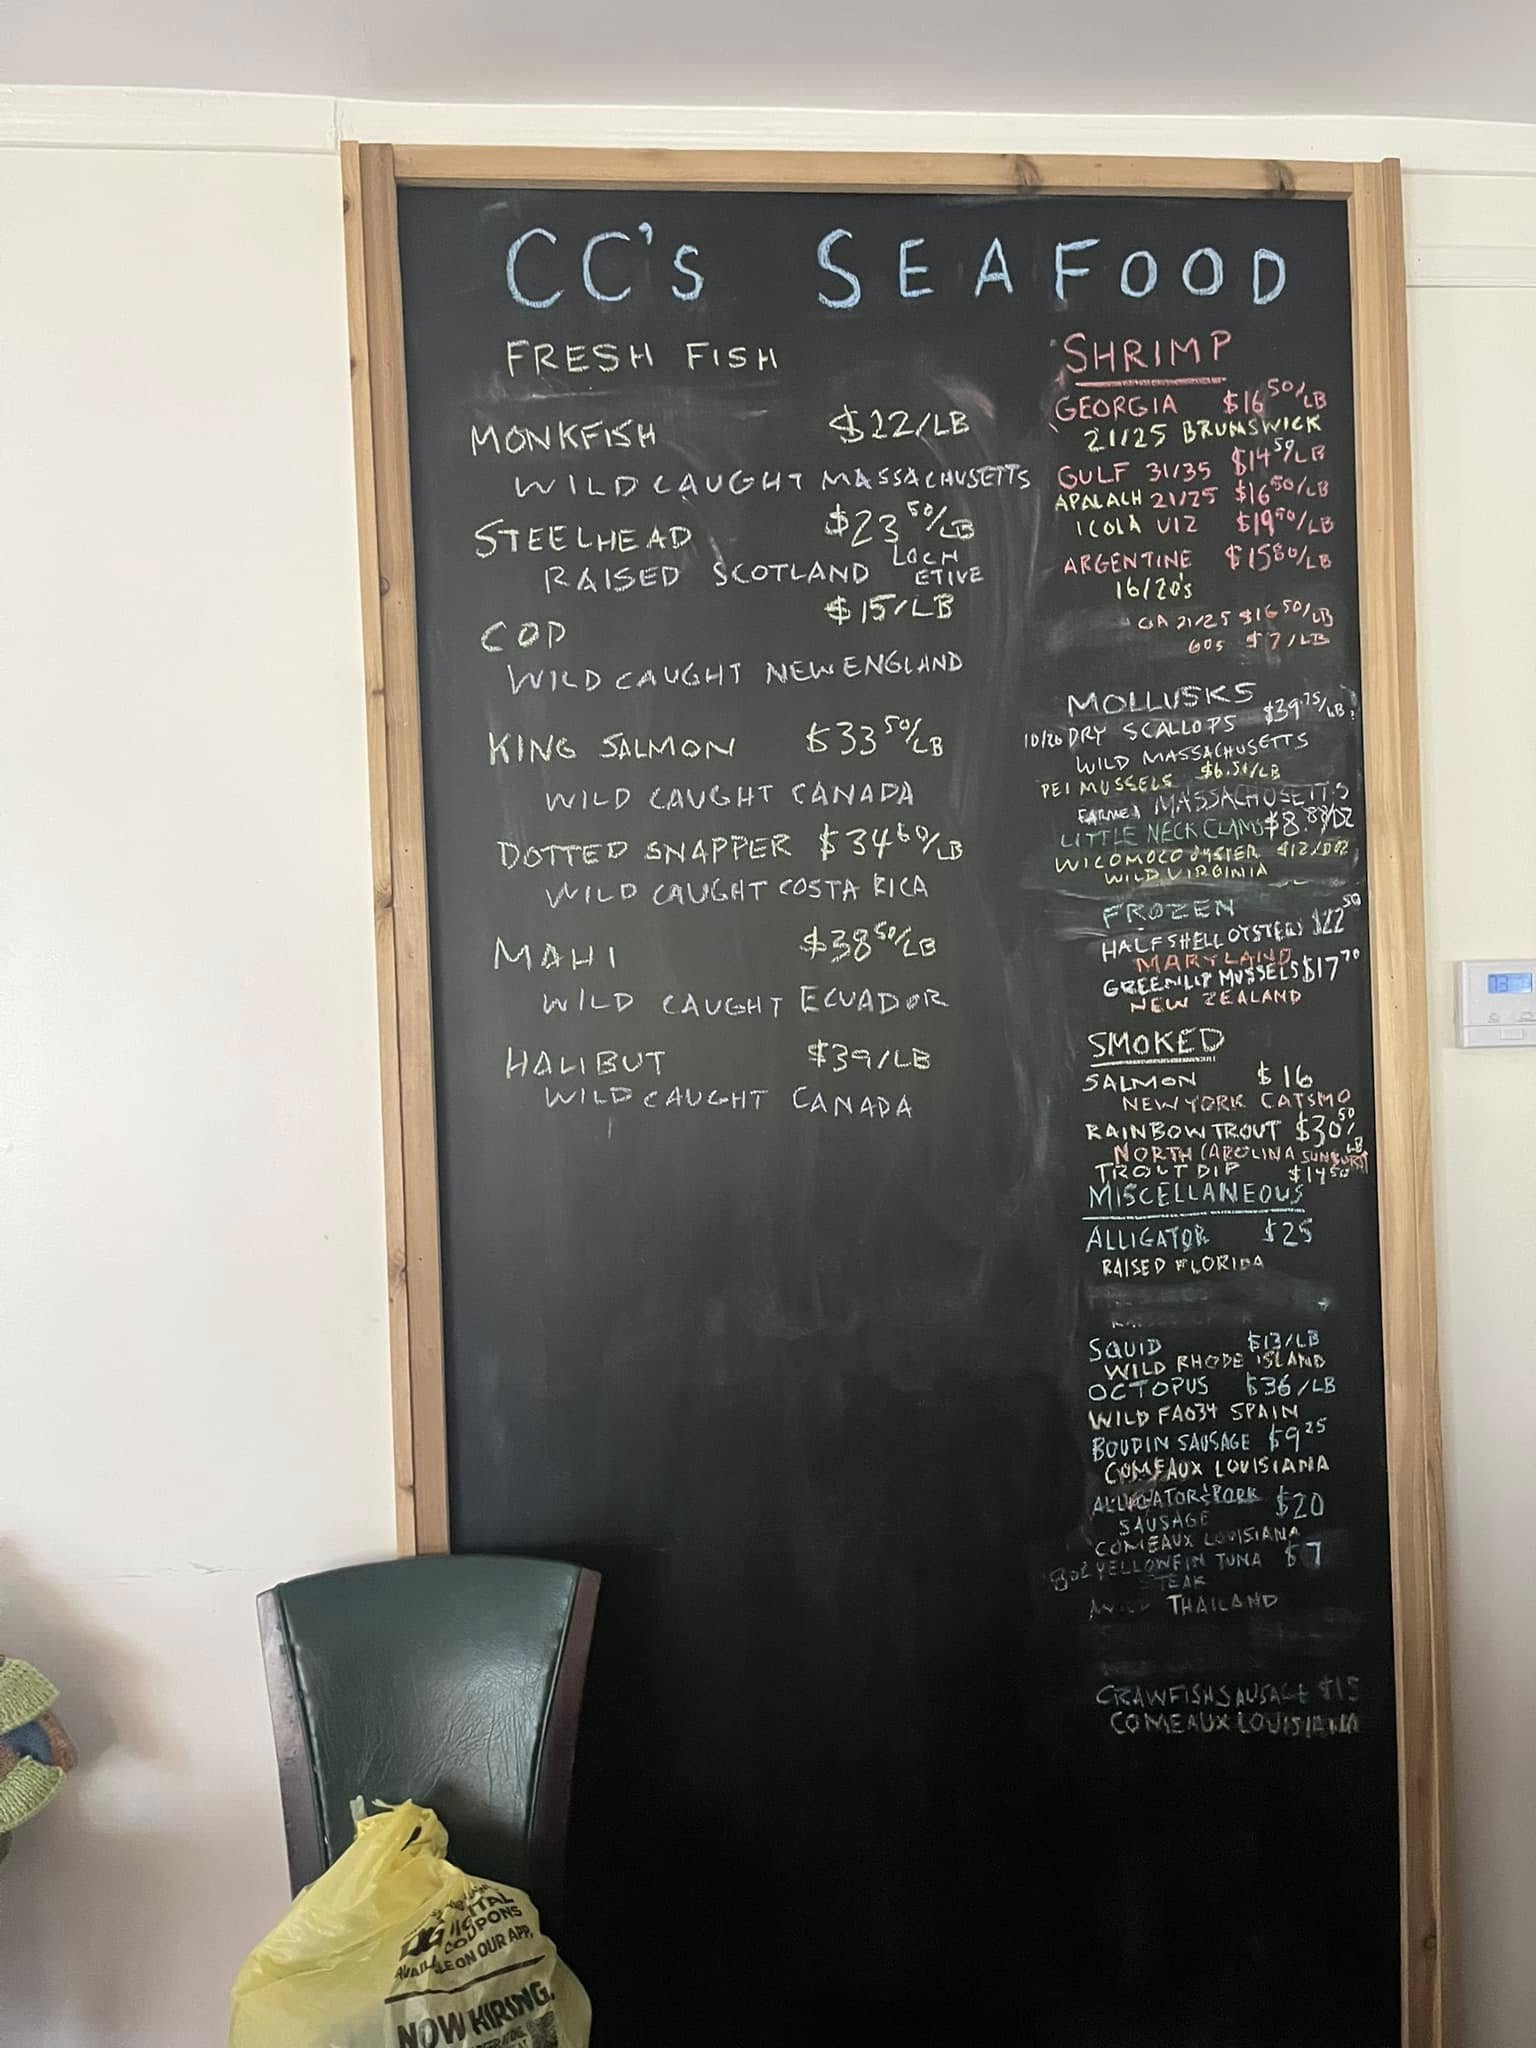 CC'S SEAFOOD
FRESH FISH
MONKFISH $22/LB
WILD CAUGHT MASSACHUSETTS
STEELHEAD $23 50/LB
RAISED SCOTLAND LOCH ETIVE
COD $15/LB
WILD CAUGHT NEW ENGLAND
KING SALMON $33 50/LB
WILD CAUGHT CANADA
DOTTED SNAPPER $34 60/LB
WILD CAUGHT COSTA RICA
MAHI $38 50/LB
WILD CAUGHT ECUADOR
HALIBUT $39/LB
WILD CAUGHT CANADA
SHRIMP
GEORGIA $16 50/LB
21/25 BRUNSWICK
GULF 31/35 $14 50/LB
APALACH 21/25 $16 50/LB
ICOLA U12 $19 90/LB
ARGENTINE $15 80/LB
16/20'S
GA 21/25 $16 50/LB
60s $7/LB
MOLLUSKS
10/20 DRY SCALLOPS $39.75/LB
WILD MASSACHUSETTS
PEI MUSSELS $6.51/LB
FARMED MASSACHUSETTS
LITTLE NECK CLAMS $8.88/DZ
WICOMOCO OYSTER $12/DOZ
WILD VIRGINIA
FROZEN
HALFSHELL OYSTERS $22 50
MARYLAND
GREENLIP MUSSELS $17 70
NEW ZEALAND
SMOKED
SALMON $16
NEW YORK CATSMO
RAINBOW TROUT $30 50/LB
NORTH CAROLINA SUNBURST
TROUT DIP $14 50
MISCELLANEOUS
ALLIGATOR $25
RAISED FLORIDA
SQUID $13/LB
WILD RHODE ISLAND
OCTOPUS $36/LB
WILD FAO34 SPAIN
BOUDIN SAUSAGE $9 25
COMEAUX LOUISIANA
ALLIGATOR & PORK $20
SAUSAGE
COMEAUX LOUISIANA
8oz YELLOWFIN TUNA $7
STEAK
WILD THAILAND
CRAWFISH SAUSAGE $15
COMEAUX LOUISIANA
DIGITAL
COUPONS
AVAILABLE ON OUR APP.
NOW HIRING.